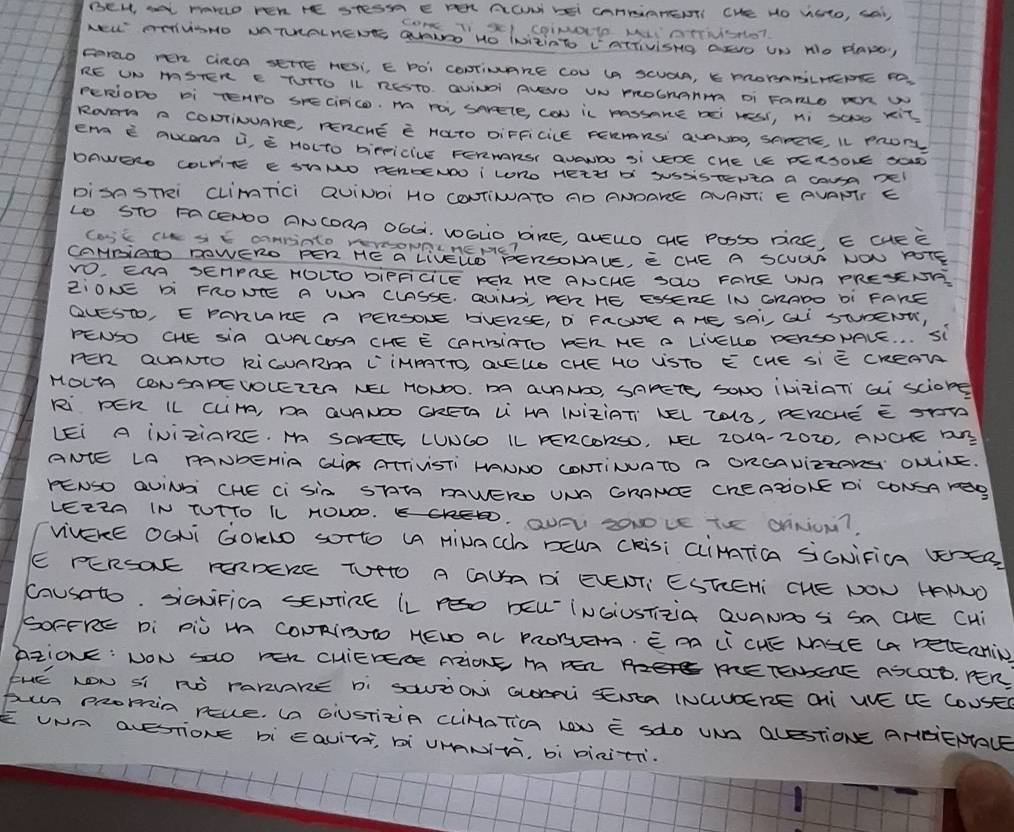 BEH, SAI PARLO PER ME STESSA E PER ALCUNI DEI CAMBIAMENTI CHE HO VISTO, SAI,
COME TI SEI COINVOLTA NELL'ATTIVISMO?
NELL'ATTIVISMO NATURALMENTE QUANDO HO INIZIATO L'ATTIVISMO AVEVO UN MIO PIANO,
FARLO PER CIRCA SETTE MESI, E POI CONTINUARE CON LA SCUOLA, E PROBABILMENTE FA
RE UN MASTER E TUTTO IL RESTO. QUINDI AVEVO UN PROGRAMMA DI FARLO PER UN
PERIODO DI TEMPO SPECIFICO. MA POI, SAPETE, CON IL PASSARE DEI MESI, MI SONO RIT
ROVATA A CONTINUARE, PERCHÉ È MOLTO DIFFICILE FERMARSI QUANDO, SAPETE, IL PROBL
EMA È ANCORA LÌ, È MOLTO DIFFICILE FERMARSI QUANDO SI VEDE CHE LE PERSONE SONO
DAVVERO COLPITE E STANNO PERDENDO I LORO MEZZI DI SUSSISTENZA A CAUSA DEI
DISASTRI CLIMATICI QUINDI HO CONTINUATO AD ANDARE AVANTI E AVANTI E
LO STO FACENDO ANCORA OGGI. VOGLIO DIRE, QUELLO CHE POSSO DIRE, E CHE È
COS'È CHE SI È CAMBIATO PERSONALMENTE?
CAMBIATO DAVVERO PER ME A LIVELLO PERSONALE, È CHE A SCUOLA NON POTE
VO, ERA SEMPRE MOLTO DIFFICILE PER ME ANCHE SOLO FARE UNA PRESENTA
ZIONE DI FRONTE A UNA CLASSE. QUINDI, PER ME ESSERE IN GRADO DI FARE
QUESTO, E PARLARE A PERSONE DIVERSE, DI FRONTE A ME, SAI, GLI STUDENTI,
PENSO CHE SIA QUALCOSA CHE È CAMBIATO PER ME A LIVELLO PERSONALE... SÌ
PER QUANTO RIGUARDA L'IMPATTO, QUELLO CHE HO VISTO È CHE SI È CREATA
MOLTA CONSAPEVOLEZZA NEL MONDO. DA QUANDO, SAPETE, SONO INIZIATI GLI SCIOPE
RI PER IL CLIMA, DA QUANDO GRETA LI HA INIZIATI NEL 2018, PERCHÉ È STATA
LEI A INIZIARE. MA SAPETE, LUNGO IL PERCORSO, NEL 2019-2020, ANCHE DUR
ANTE LA PANDEMIA GLI ATTIVISTI HANNO CONTINUATO A ORGANIZZARSI ONLINE.
PENSO QUINDI CHE CI SIA STATA DAVVERO UNA GRANDE CREAZIONE DI CONSAPEVO
LEZZA IN TUTTO IL MONDO. E CREDO. QUALI SONO LE TUE OPINIONI?
VIVERE OGNI GIORNO SOTTO LA MINACCIA DELLA CRISI CLIMATICA SIGNIFICA VEDERE
E PERSONE PERDERE TUTTO A CAUSA DI EVENTI ESTREMI CHE NON HANNO
CAUSATO. SIGNIFICA SENTIRE IL PESO DELL'INGIUSTIZIA QUANDO SI SA CHE CHI
SOFFRE DI PIÙ HA CONTRIBUTO MENO AL PROBLEMA. È DA LÌ CHE NASCE LA DETERMIN
AZIONE: NON SOLO PER CHIEDERE AZIONE, MA PER PRETENDERE ASCOLTO. PER
CHÉ NON SI PUÒ PARLARE DI SOLUZIONI GLOBALI SENZA INCLUDERE CHI VIVE LE CONSEG
SULLA PROPRIA PELLE. LA GIUSTIZIA CLIMATICA NON È SOLO UNA QUESTIONE AMBIENTALE
È UNA QUESTIONE DI EQUITÀ, DI UMANITÀ, DI DIRITTI.